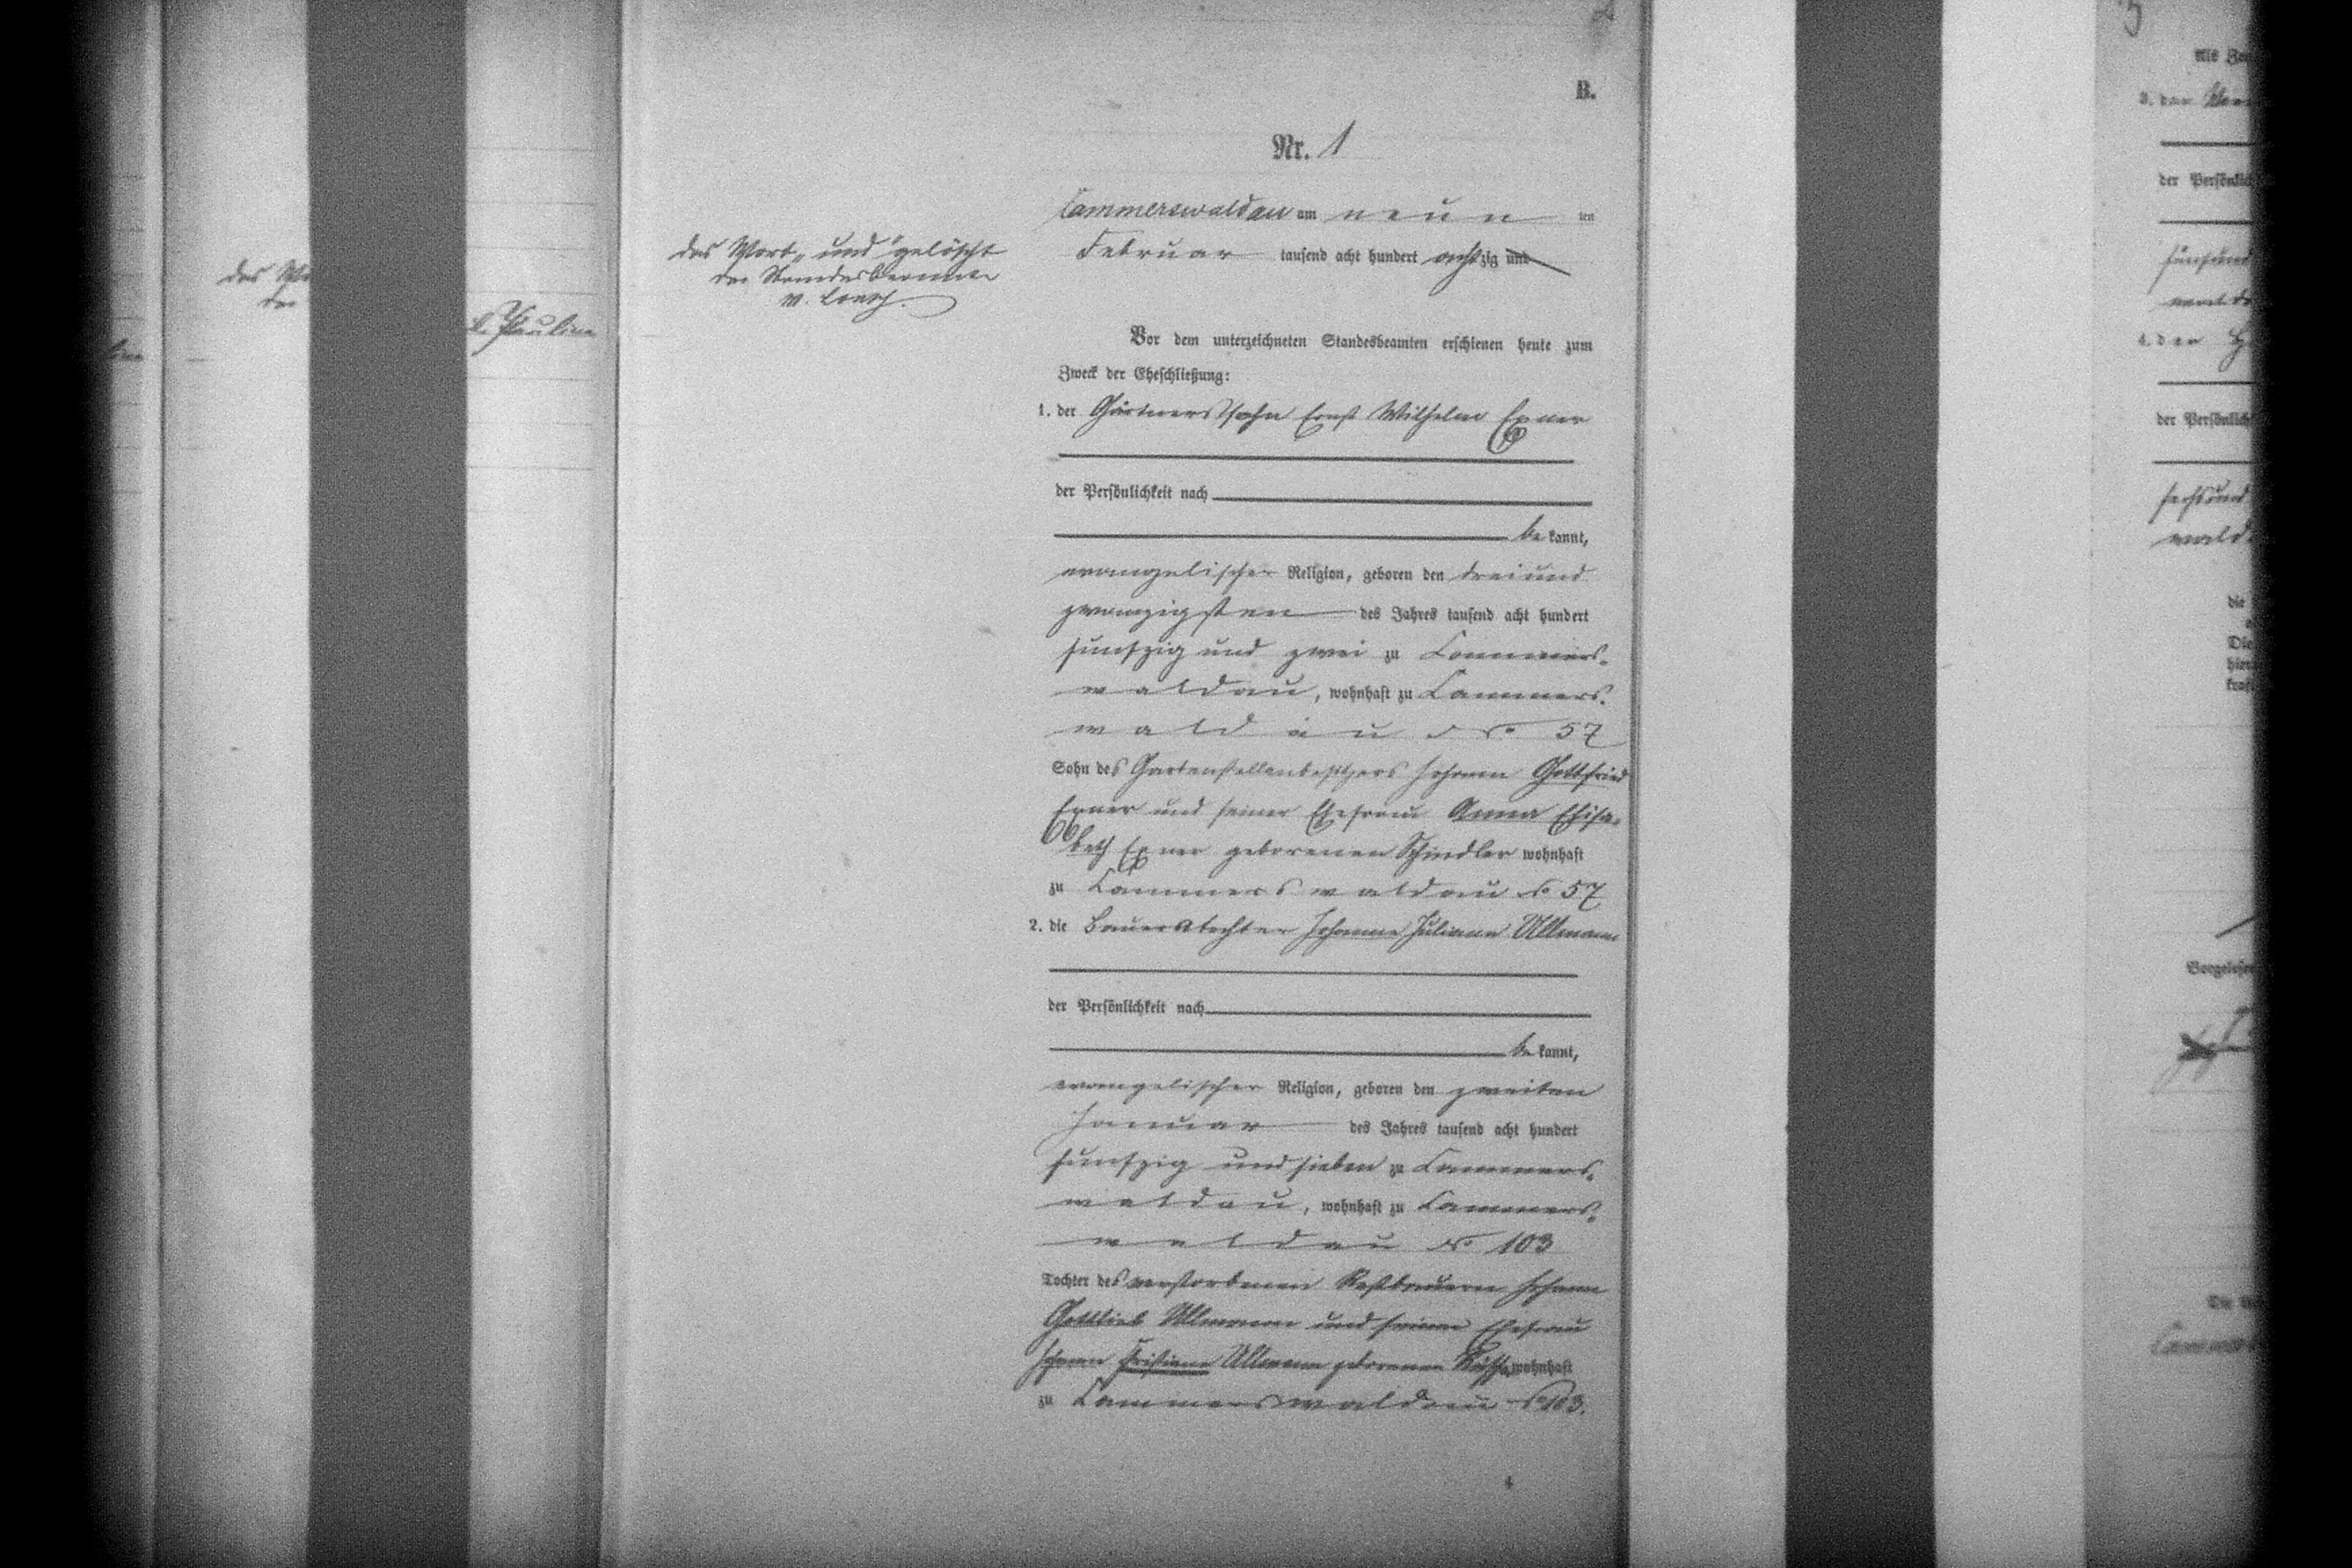 B.
Nr. 1
Cammerswaldau am neun ten
Februar tausend acht hundert achtzig und
das Wort „und" gelöscht
der Standesbeamte
Vor dem unterzeichneten Standesbeamten erschienen heute zum
Zweck der Eheschließung:
1. der Gärtnerssohn Ernst Wilhelm Exner
der Persönlichkeit nach
be kannt,
evangelischer Religion, geboren den dreiund
zwanzigsten des Jahres tausend acht hundert
funfzig und zwei zu Cammers-
waldau, wohnhaft zu Cammers-
waldau No 57
Sohn des Gartenstellenbesitzers Johann Gottfried
Exner und seiner Ehefrau Anna Elisa-
beth Exner geborenen Schindler wohnhaft
zu Cammerswaldau No 57
2. die Bauerstochter Johanne Juliane Ullmann
der Persönlichkeit nach
be kannt,
evangelischer Religion, geboren den zweiten
Januar des Jahres tausend acht hundert
funfzig und sieben zu Cammers-
waldau, wohnhaft zu Cammers-
waldau No 103
Tochter des verstorbenen Restbauern Johann
Gottlieb Ullmann und seiner Ehefrau
Ullmann geborenen wohnhaft
zu Cammerswaldau No 103.
Pauline
das
der
der
der